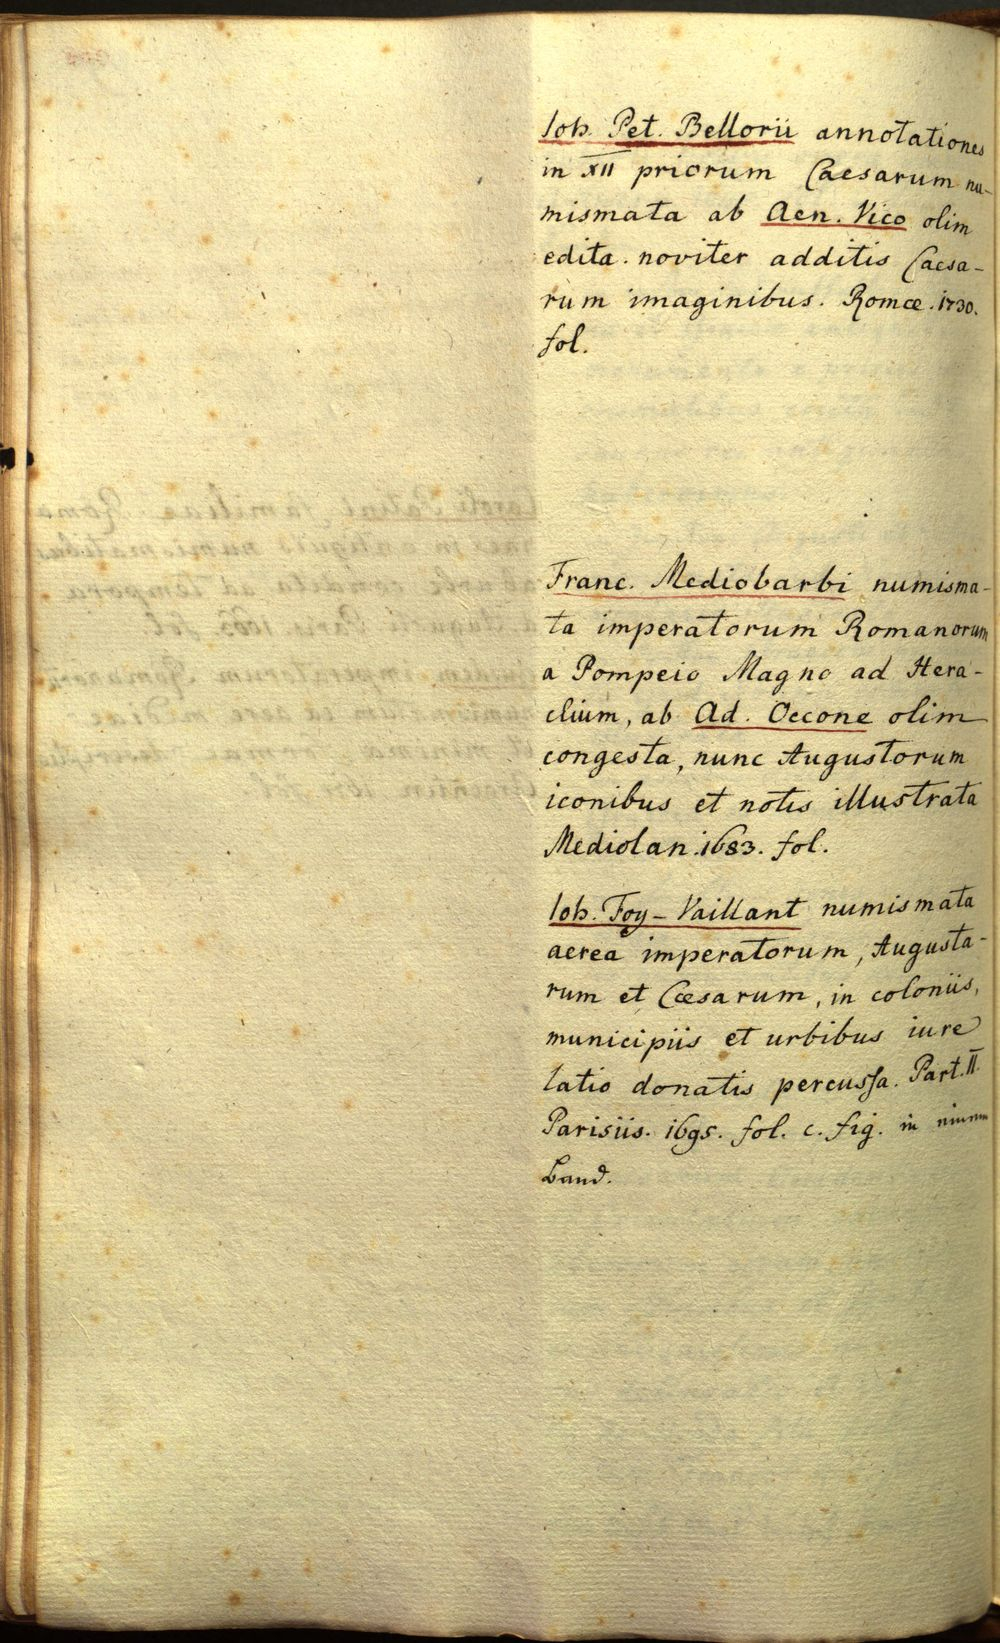 Ioh. Pet. Bellorii annotationes
in XII priorum Caesarum nu-
mismata ab Aen. Vico olim
edita. noviter additis Caesa-
rum imaginibus. Romæ. 1730.
fol.
Franc. Mediobarbi numisma-
ta imperatorum Romanorum
a Pompeio Magno ad Hera-
clium, ab Ad. Occone olim
congesta, nunc Augustorum
iconibus et notis illustrata
Mediolan. 1683. fol.
Ioh. Foy-Vaillant numismata
aerea imperatorum, Augusta-
rum et Cæsarum, in coloniis,
municipiis et urbibus iure
latio donatis percussa. Part. II.
Parisiis. 1695. fol. c. fig. in einem
Band.